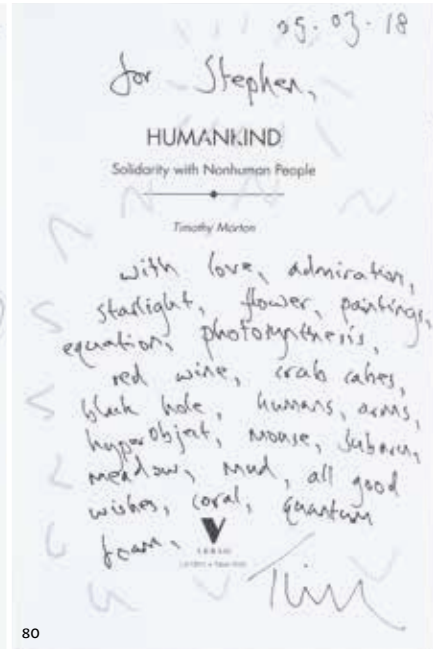 05.03.18
for Stephen,
HUMANKIND
Solidarity with Nonhuman People
Timothy Morton
with love, admiration,
starlight, flower, paintings,
equation, photosynthesis,
red wine, crab cakes,
black hole, humans, arms,
hyperobject, mouse, Subaru,
meadow, mud, all good
wishes, coral, quantum
foam,
V
VERSO
London • New York
Tim
80